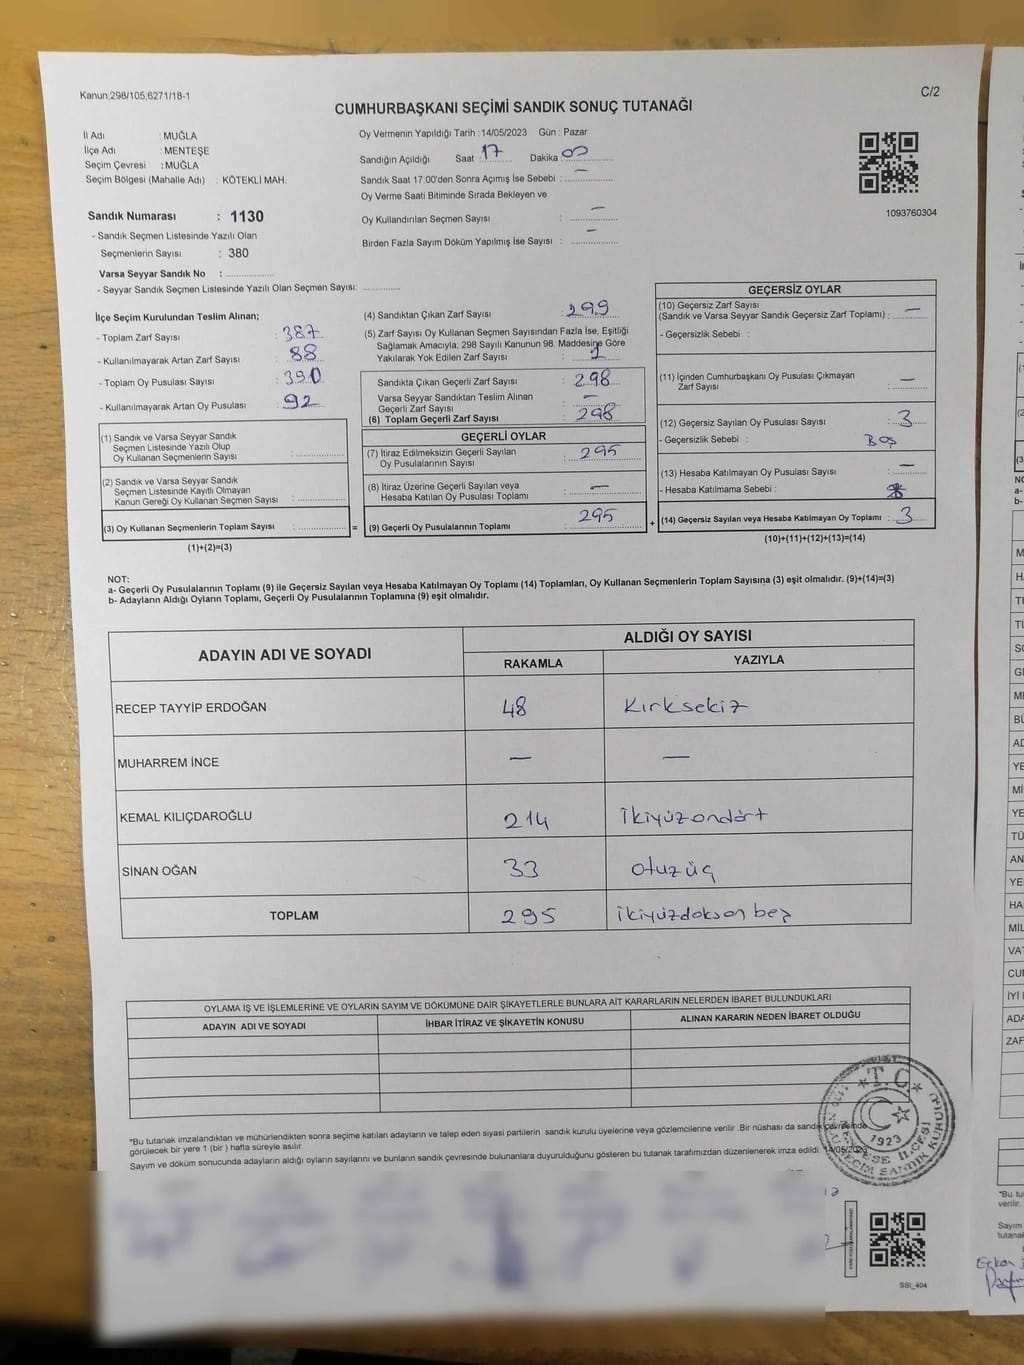 Kanun;298/105,6271/18-1
C/2
CUMHURBAŞKANI SEÇİMİ SANDIK SONUÇ TUTANAĞI
İl Adı : MUĞLA
İlçe Adı : MENTEŞE
Seçim Çevresi : MUĞLA
Seçim Bölgesi (Mahalle Adı) : KÖTEKLİ MAH.
Oy Vermenin Yapıldığı Tarih : 14/05/2023 Gün : Pazar
Sandığın Açıldığı Saat : 17 Dakika : 00
Sandık Saat 17.00'den Sonra Açımış İse Sebebi : —
Oy Verme Saati Bitiminde Sırada Bekleyen ve
Oy Kullandırılan Seçmen Sayısı : —
Birden Fazla Sayım Döküm Yapılmış İse Sayısı : —
1093760304
Sandık Numarası : 1130
- Sandık Seçmen Listesinde Yazılı Olan
Seçmenlerin Sayısı : 380
Varsa Seyyar Sandık No :
- Seyyar Sandık Seçmen Listesinde Yazılı Olan Seçmen Sayısı:
İlçe Seçim Kurulundan Teslim Alınan;
- Toplam Zarf Sayısı : 387
- Kullanılmayarak Artan Zarf Sayısı : 88
- Toplam Oy Pusulası Sayısı : 390
- Kullanılmayarak Artan Oy Pusulası : 92
(1) Sandık ve Varsa Seyyar Sandık
Seçmen Listesinde Yazılı Olup
Oy Kullanan Seçmenlerin Sayısı :
(2) Sandık ve Varsa Seyyar Sandık
Seçmen Listesinde Kayıtlı Olmayan
Kanun Gereği Oy Kullanan Seçmen Sayısı :
(3) Oy Kullanan Seçmenlerin Toplam Sayısı : =
(1)+(2)=(3)
(4) Sandıktan Çıkan Zarf Sayısı : 299
(5) Zarf Sayısı Oy Kullanan Seçmen Sayısından Fazla İse, Eşitliği
Sağlamak Amacıyla; 298 Sayılı Kanunun 98. Maddesine Göre
Yakılarak Yok Edilen Zarf Sayısı : 1
Sandıkta Çıkan Geçerli Zarf Sayısı : 298
Varsa Seyyar Sandıktan Teslim Alınan
Geçerli Zarf Sayısı : —
(6) Toplam Geçerli Zarf Sayısı : 298
GEÇERLİ OYLAR
(7) İtiraz Edilmeksizin Geçerli Sayılan
Oy Pusulalarının Sayısı : 295
(8) İtiraz Üzerine Geçerli Sayılan veya
Hesaba Katılan Oy Pusulası Toplamı : —
(9) Geçerli Oy Pusulalarının Toplamı : 295 +
GEÇERSİZ OYLAR
(10) Geçersiz Zarf Sayısı
(Sandık ve Varsa Seyyar Sandık Geçersiz Zarf Toplamı) : —
- Geçersizlik Sebebi :
(11) İçinden Cumhurbaşkanı Oy Pusulası Çıkmayan
Zarf Sayısı : —
(12) Geçersiz Sayılan Oy Pusulası Sayısı : 3
- Geçersizlik Sebebi : BOŞ
(13) Hesaba Katılmayan Oy Pusulası Sayısı : —
- Hesaba Katılmama Sebebi :
(14) Geçersiz Sayılan veya Hesaba Katılmayan Oy Toplamı : 3
(10)+(11)+(12)+(13)=(14)
NOT:
a- Geçerli Oy Pusulalarının Toplamı (9) ile Geçersiz Sayılan veya Hesaba Katılmayan Oy Toplamı (14) Toplamları, Oy Kullanan Seçmenlerin Toplam Sayısına (3) eşit olmalıdır. (9)+(14)=(3)
b- Adayların Aldığı Oyların Toplamı, Geçerli Oy Pusulalarının Toplamına (9) eşit olmalıdır.
ADAYIN ADI VE SOYADI
ALDIĞI OY SAYISI
RAKAMLA YAZIYLA
RECEP TAYYİP ERDOĞAN 48 Kırksekiz
MUHARREM İNCE — —
KEMAL KILIÇDAROĞLU 214 İkiyüzondört
SİNAN OĞAN 33 otuzüç
TOPLAM 295 İkiyüzdoksanbeş
OYLAMA İŞ VE İŞLEMLERİNE VE OYLARIN SAYIM VE DÖKÜMÜNE DAİR ŞİKAYETLERLE BUNLARA AİT KARARLARIN NELERDEN İBARET BULUNDUKLARI
ADAYIN ADI VE SOYADI İHBAR İTİRAZ VE ŞİKAYETİN KONUSU ALINAN KARARIN NEDEN İBARET OLDUĞU
*Bu tutanak imzalandıktan ve mühürlendikten sonra seçime katılan adayların ve talep eden siyasi partilerin sandık kurulu üyelerine veya gözlemcilerine verilir .Bir nüshası da sandık çevresinde
görülecek bir yere 1 (bir ) hafta süreyle asılır.
Sayım ve döküm sonucunda adayların aldığı oyların sayılarını ve bunların sandık çevresinde bulunanlara duyurulduğunu gösteren bu tutanak tarafımızdan düzenlenerek imza edildi. 14/05/2023
T.C.
1923
SSI_404